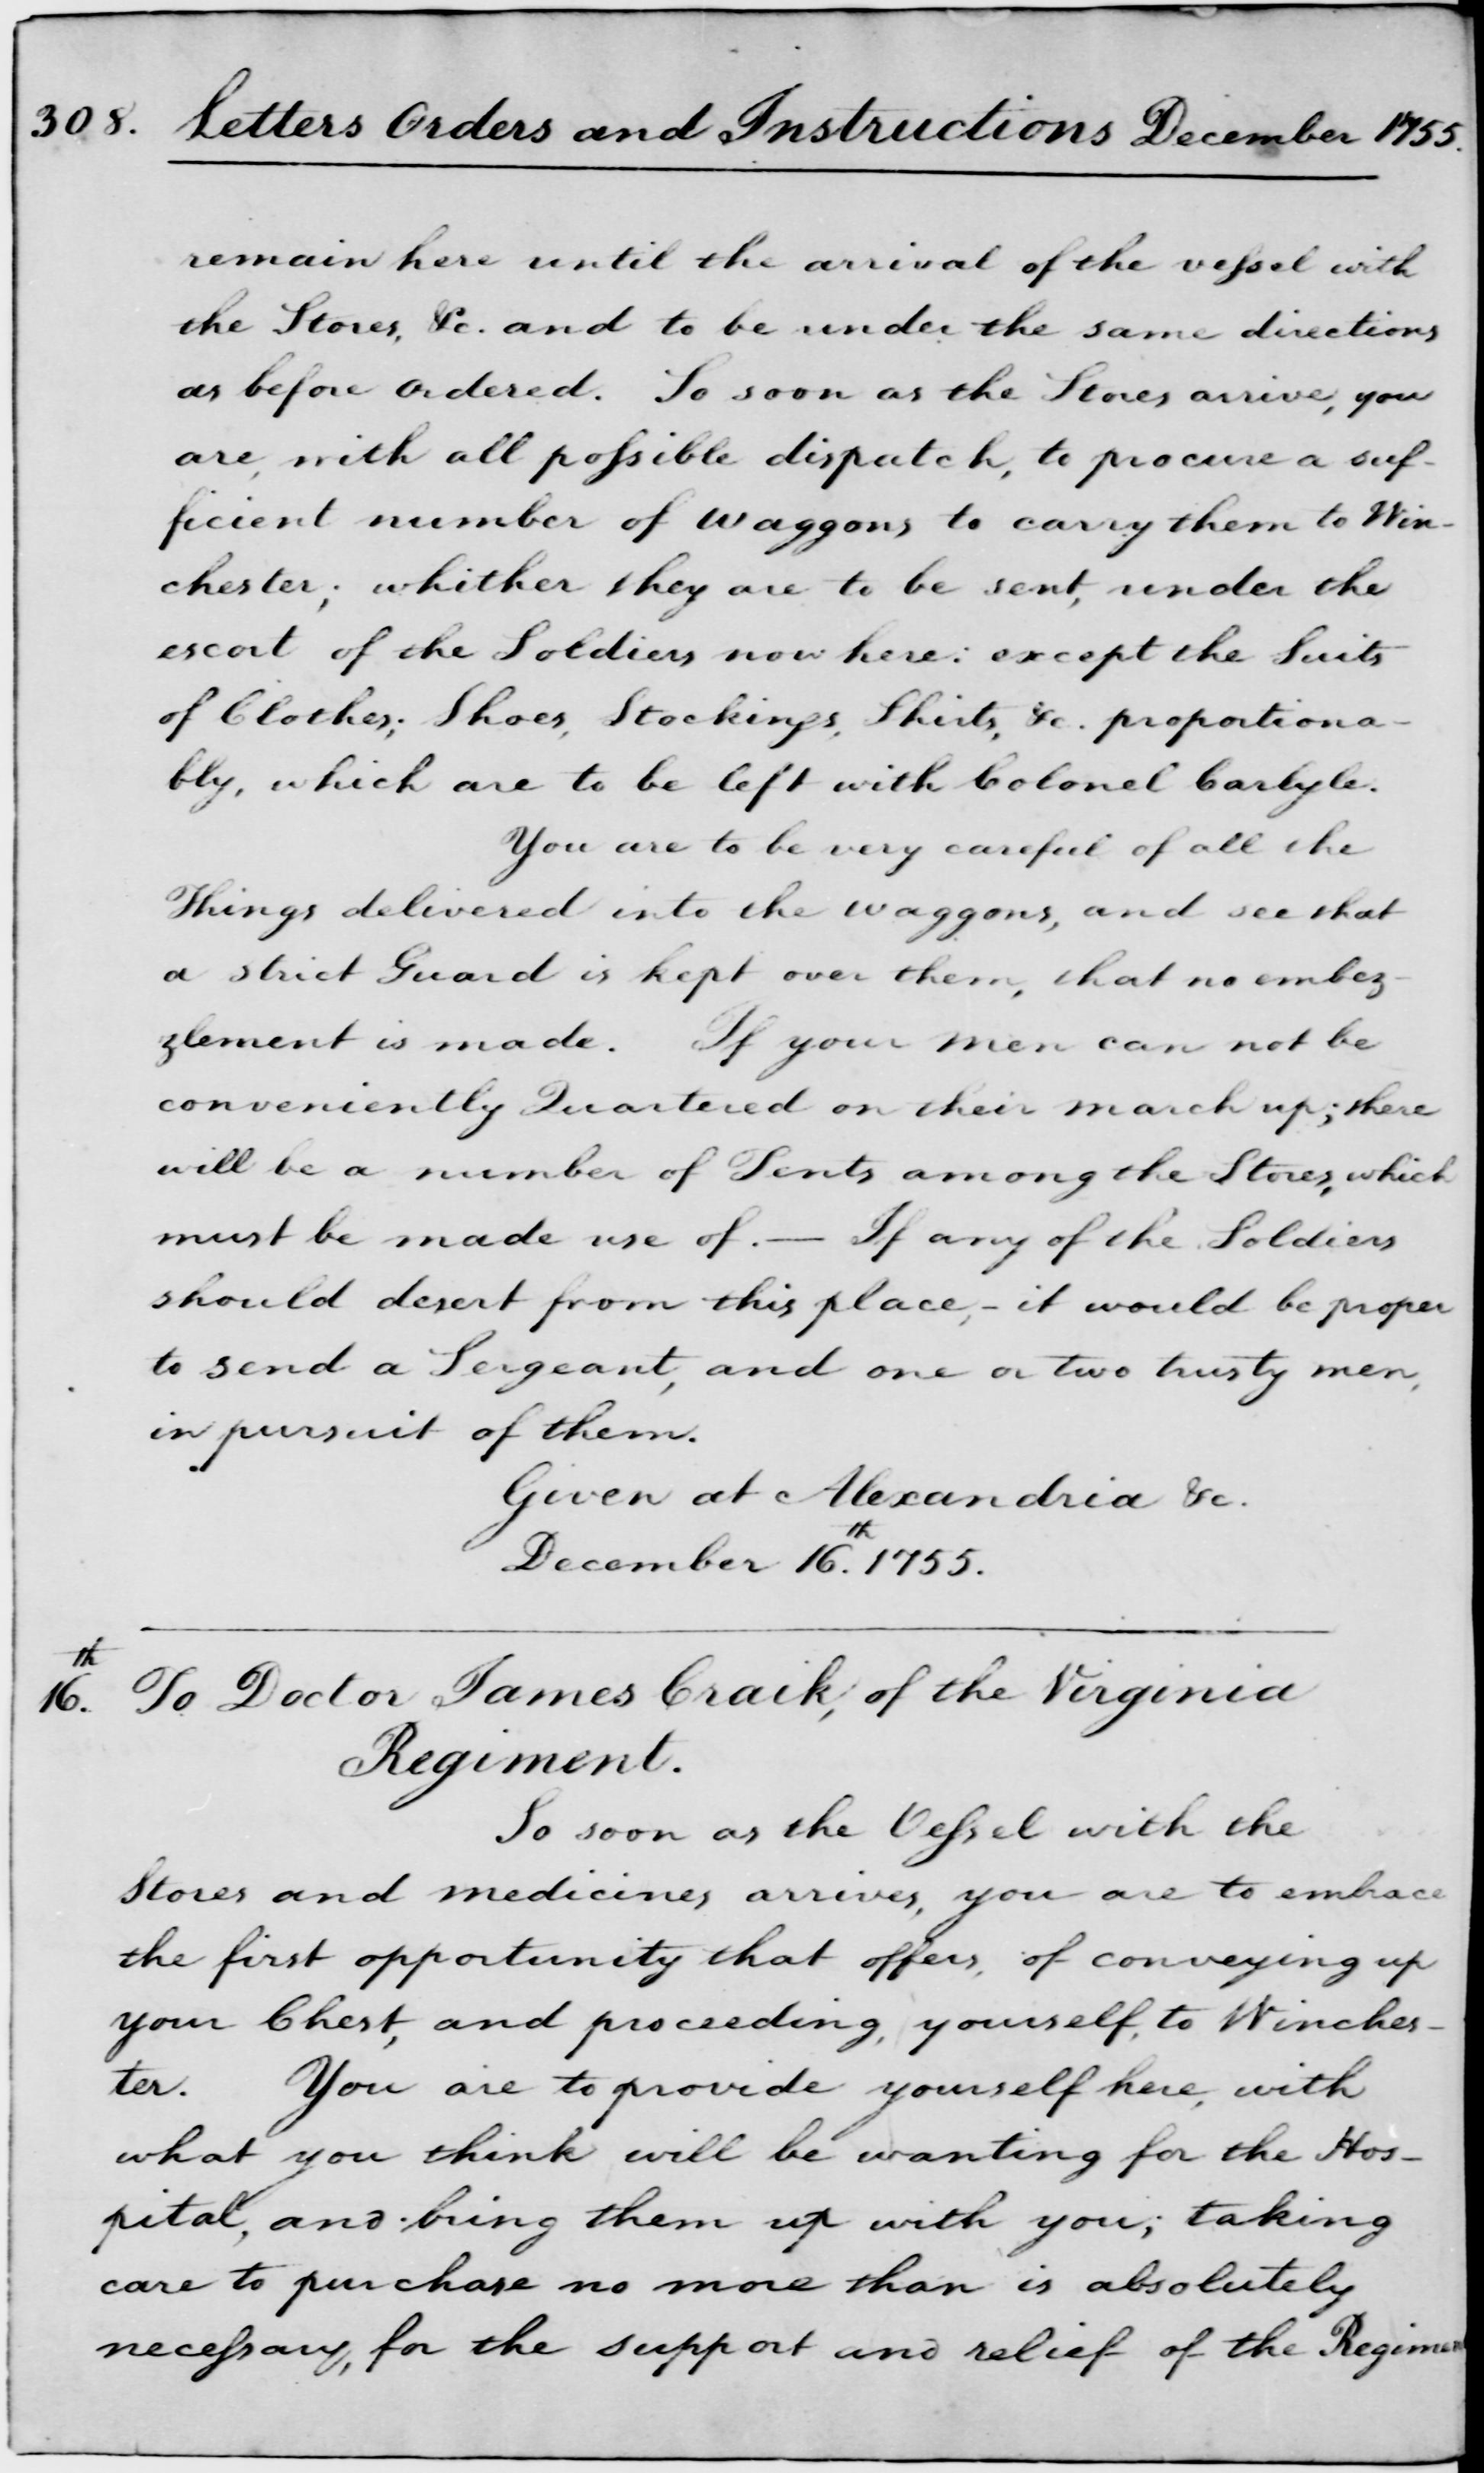 308. Letters Orders and Instructions December 1755.
remain here until the arrival of the veſsel with
the Stores, &c. and to be under the same directions
as before ordered. So soon as the Stores arrive, you
are, with all poſsible dispatch, to procure a suf-
ficient number of waggons to carry them to Win-
chester; whither they are to be sent, under the
escort of the Soldiers now here: except the Suits
of Clothes; Shoes, Stockings, Shirts, &c. proportiona-
bly, which are to be left with Colonel Carlyle.
You are to be very careful of all the
Things delivered into the waggons, and see that
a strict Guard is kept over them, that no embez-
zlement is made. If your men can not be
conveniently Quartered on their march up; there
will be a number of Tents among the Stores, which
must be made use of. — If any of the Soldiers
should desert from this place,- it would be proper
to send a Sergeant, and one or two trusty men,
in pursuit of them.
Given at Alexandria &c.
December 16.th 1755.
16.th To Doctor James Craik, of the Virginia
Regiment.
So soon as the Veſsel with the
Stores and medicines arrives, you are to embrace
the first opportunity that offers, of conveying up
your Chest, and proceeding, yourself, to Winches-
ter. You are to provide yourself here, with
what you think will be wanting for the Hos-
pital, and bring them up with you; taking
care to purchase no more than is absolutely
neceſsary, for the support and relief of the Regimen